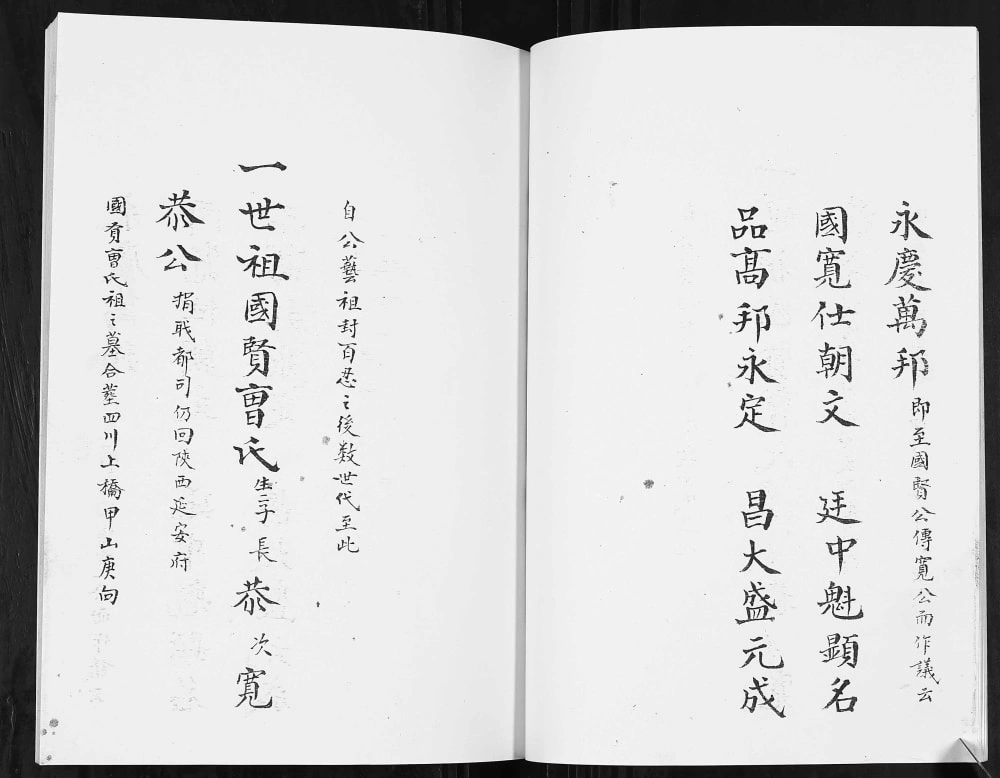 永慶萬邦 即至國賢公傳寬公而作議云
國寬仕朝文 廷中魁顯名
品高邦永定 昌大盛元成
自公藝祖封百忍之後数世代至此
一世祖國賢曺氏 生二子 長 恭 次 寬
恭公 捐职都司仍回陝西延安府
國賢曺氏祖之墓合塟四川上橋甲山庚向